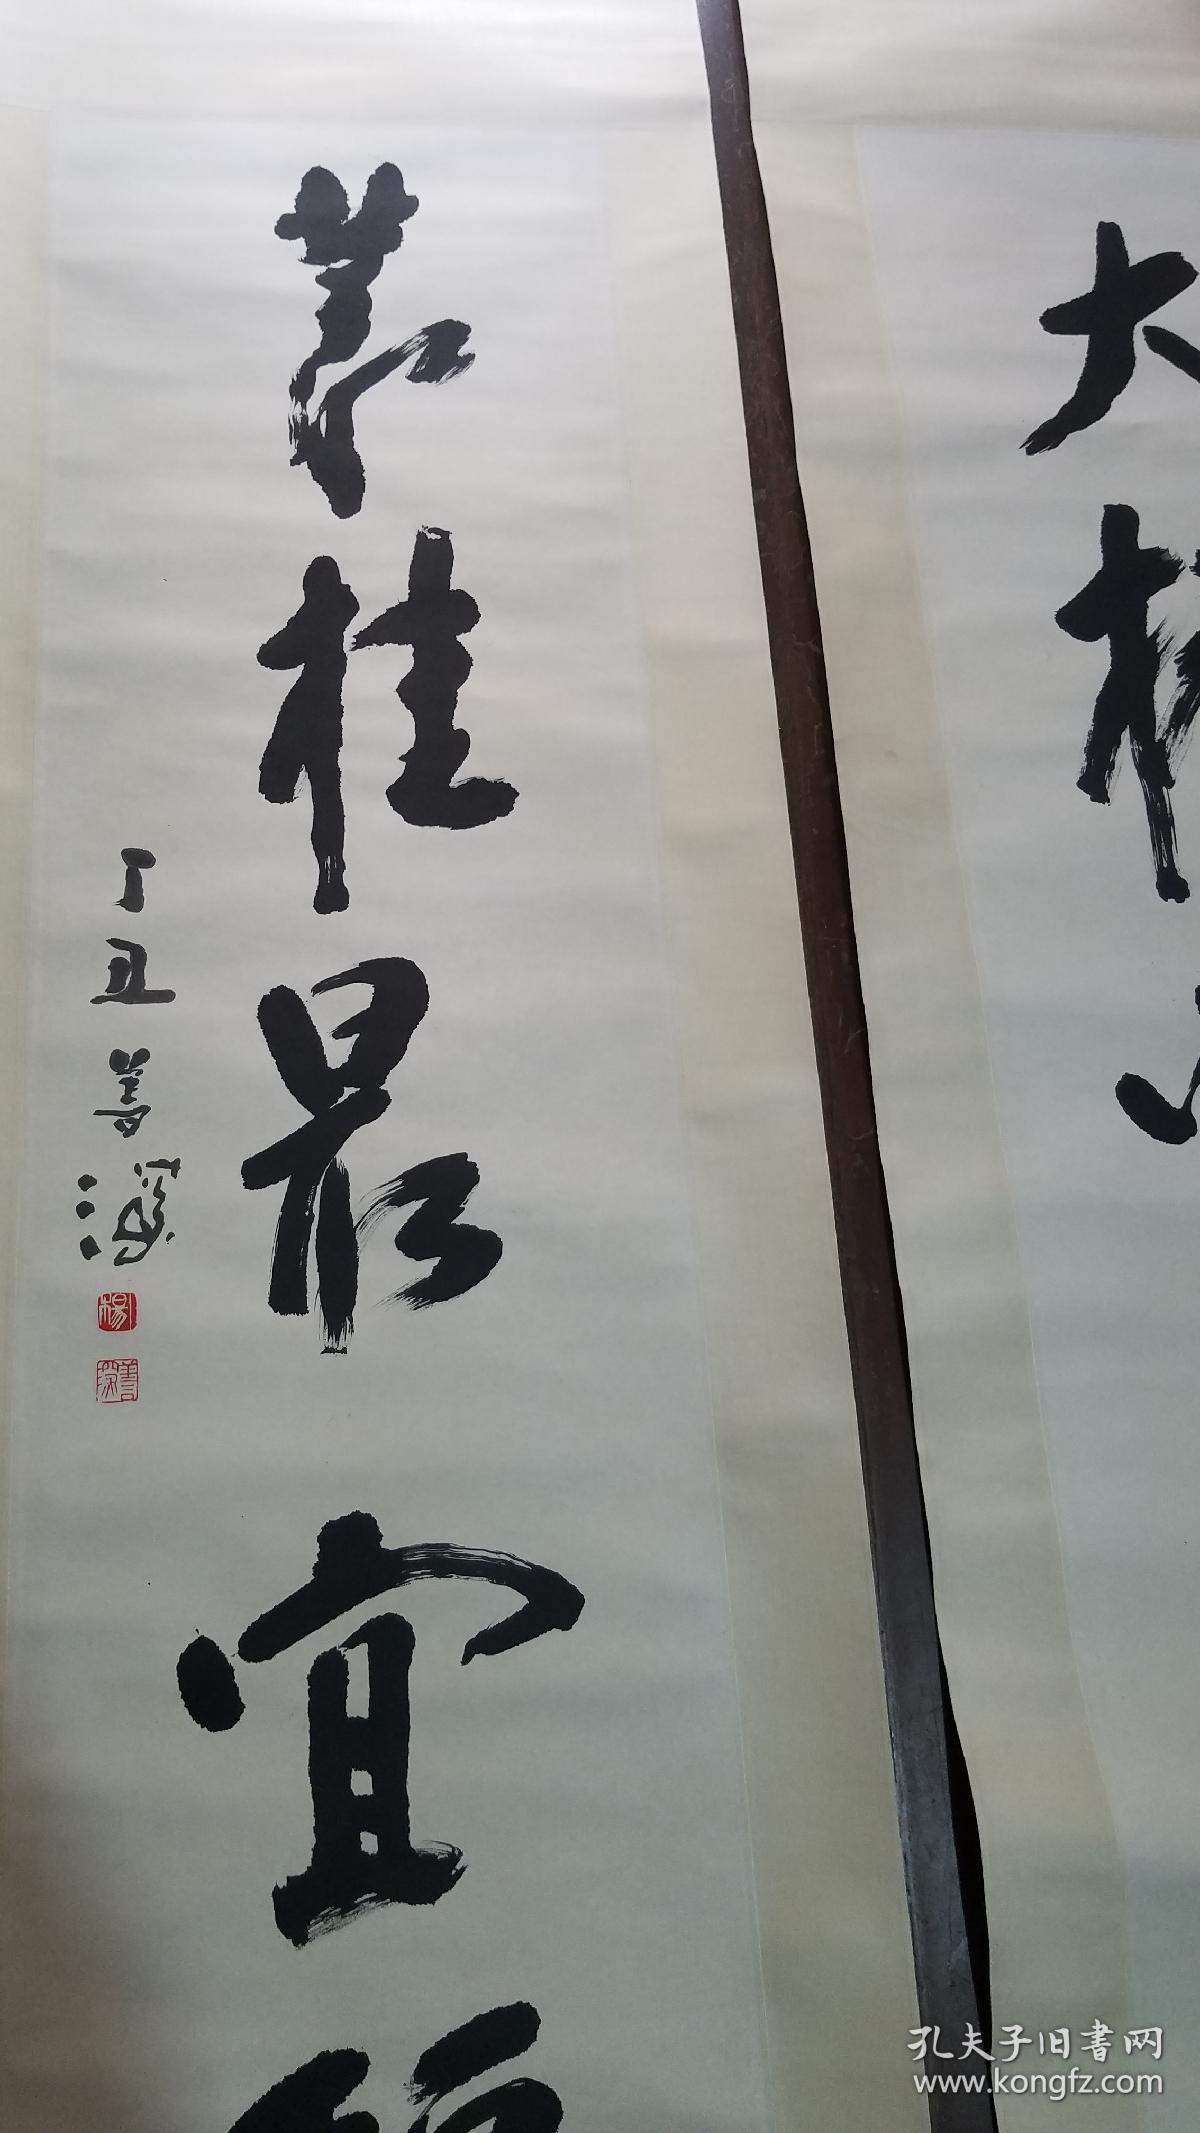 大椿
叢桂最宜
丁丑善深
楊
善深
孔夫子旧书网
www.kongfz.com